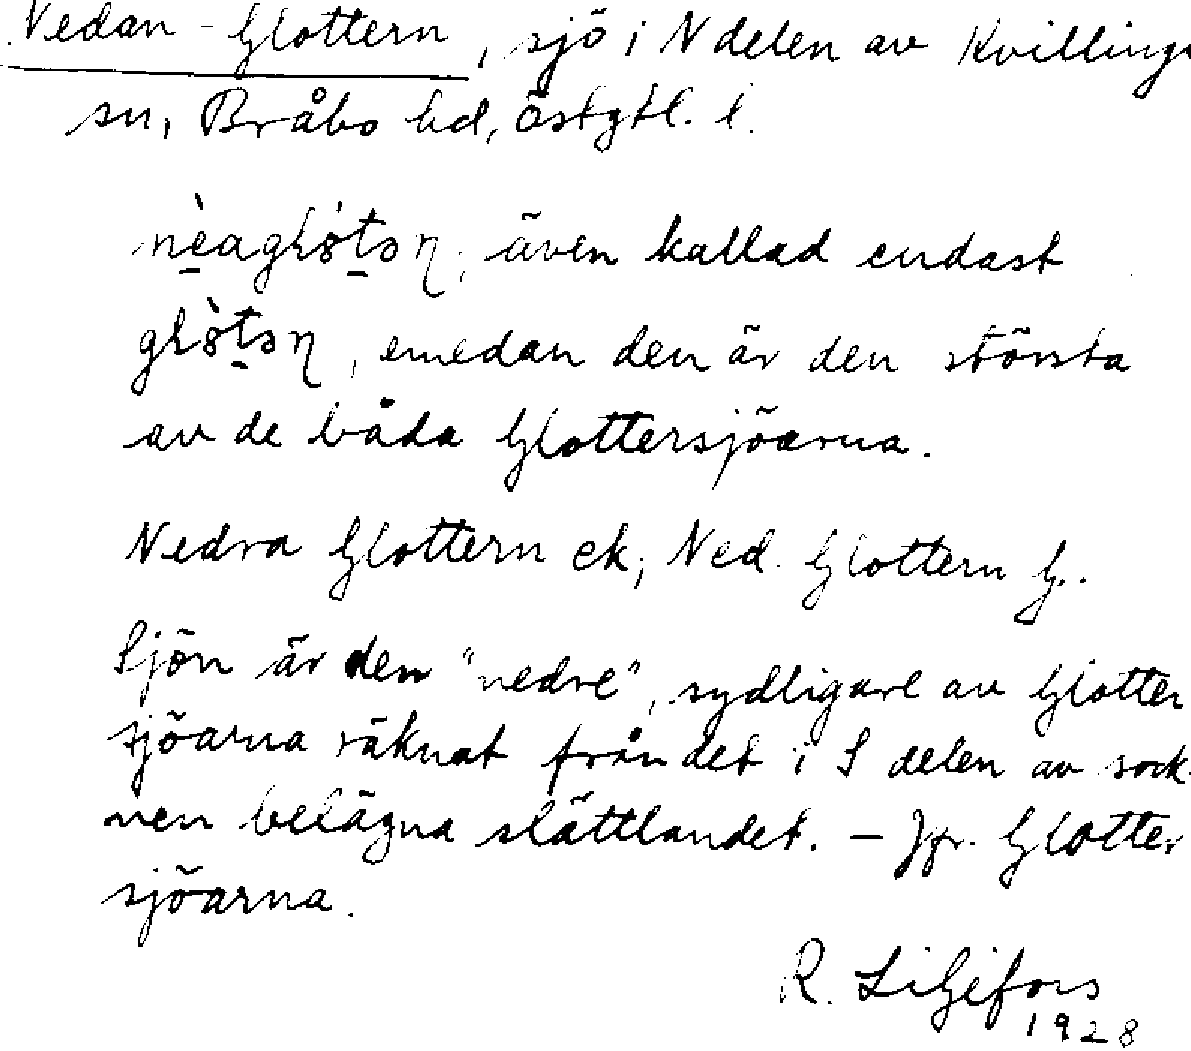 Nedan-Glottern, sjö i N delen av Kvillinge
sn, Bråbo hd, Östgtl. l.
även kallad endast
, emedan den är den största
av de båda Glottersjöarna.
Nedra Glottern ek; Ned. Glottern G..
Sjön är den "nedre", sydligare av Glotter
sjöarna räknat från det i S delen av sock-
nen belägna slättlandet. – Jfr. Glotter
sjöarna.
R. Liljefors
1928